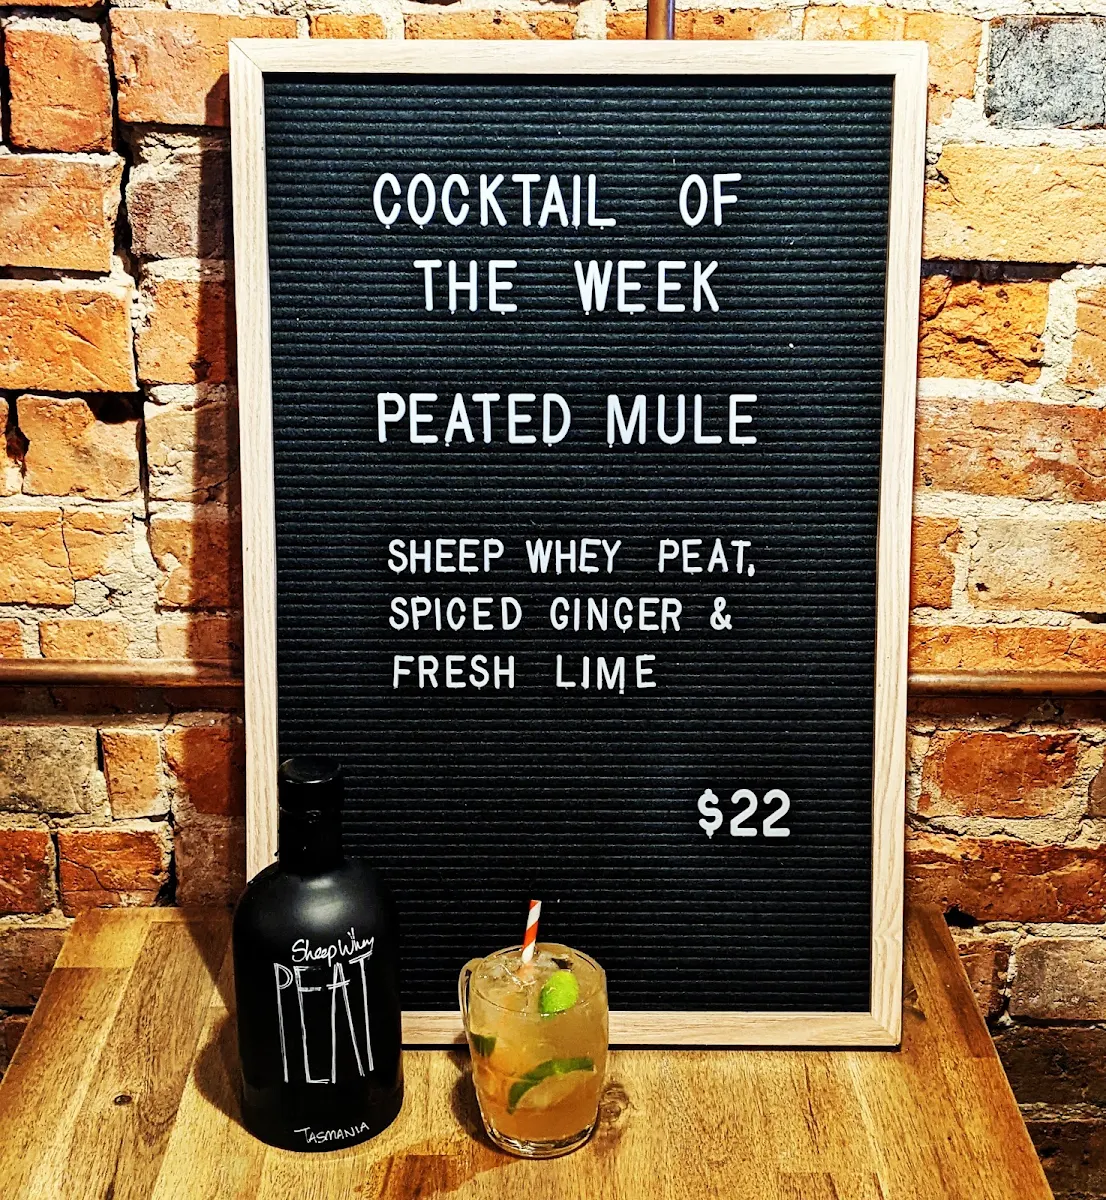 COCKTAIL OF
THE WEEK
PEATED MULE
SHEEP WHEY PEAT,
SPICED GINGER &
FRESH LIME
$22
Sheep Whey
PEAT
TASMANIA